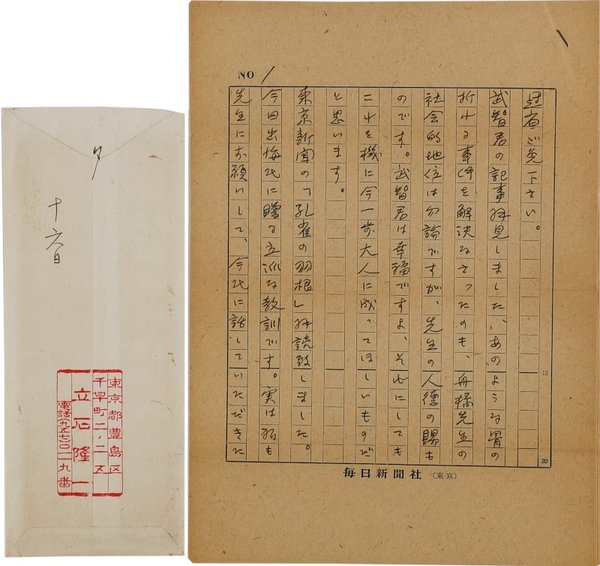 NO 1
冠省ご免下さい。
武智君の記事拝見しました、あのような骨の
折れる事件を解決なさったのも、舟橋先生の
社会的地位は勿論ですが、先生の人徳の賜も
のです。武智君は幸福ですよ、それにしても
これを機に今一歩大人に成ってほしいものだ
と思います。
東京新聞の「孔雀の羽根」拝読致しました。
今日出海氏に贈る立派な教訓です。実は私も
先生にお願いして、今氏に話していただきた
15
20
毎日新聞社（東京）
〆
十六日
東京都豊島区
千早町二ノ二五
立石隆一
電話九五七〇一一九番